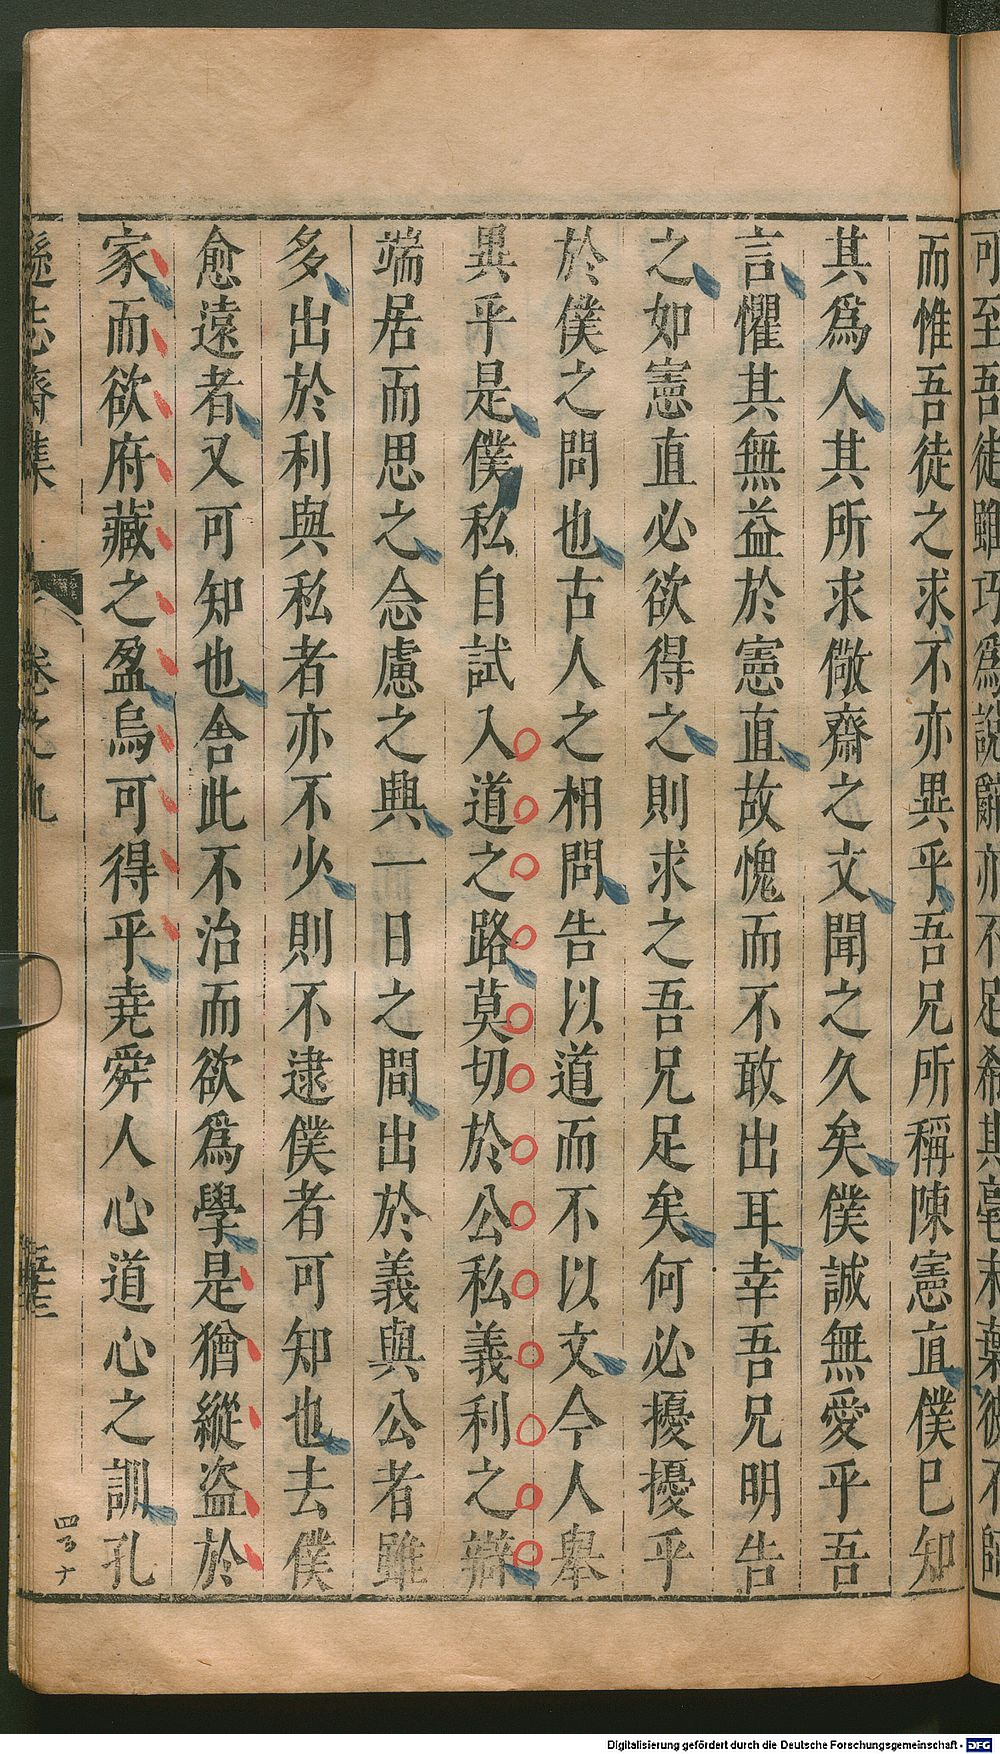 可至吾徒雖巧爲說辭亦不足
而惟吾徒之求不亦異乎吾兄所稱陳憲直僕已知
其爲人其所求儆齋之文聞之久矣僕誠無愛乎吾
言懼其無益於憲直故愧而不敢出耳幸吾兄明告
之如憲直必欲得之則求之吾兄足矣何必擾擾乎
於僕之問也古人之相問告以道而不以文今人舉
異乎是僕私自試入道之路莫切於公私義利之辯
端居而思之念慮之興一日之間出於義與公者雖
多出於利與私者亦不少則不逮僕者可知也去僕
愈遠者又可知也舍此不治而欲爲學是猶縱盜於
家而欲府藏之盈烏可得乎堯舜人心道心之訓孔
遜志齋集
卷之九
Digitalisierung gefördert durch die Deutsche Forschungsgemeinschaft - DFG